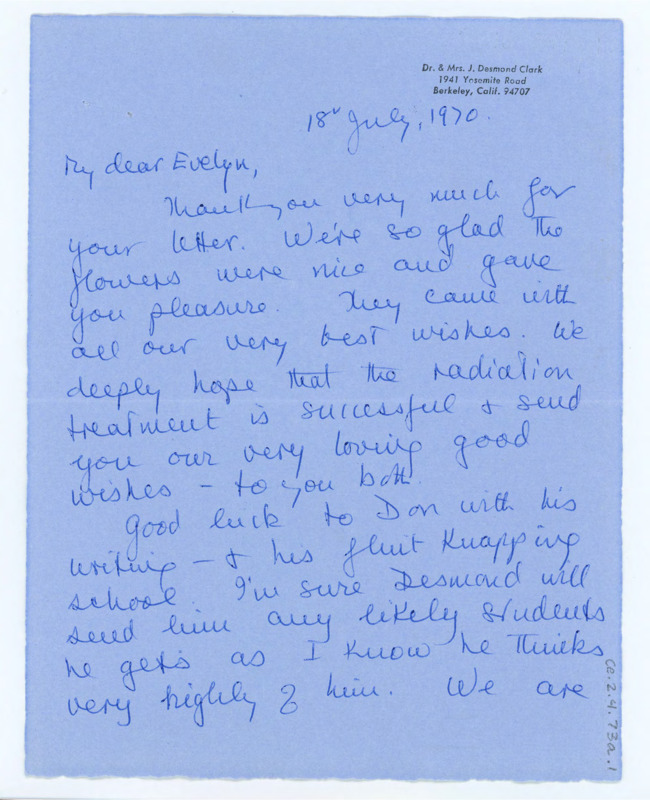 Dr. & Mrs. J. Desmond Clark
1941 Yosemite Road
Berkeley, Calif. 94707
18th July, 1970.
My dear Evelyn,
Thank you very much for
your letter. We're so glad the
flowers were nice and gave
you pleasure. They came with
all our very best wishes. We
deeply hope that the radiation
treatment is successful & send
you our very loving good
wishes – to you both.
Good luck to Don with his
writing – & his flint Knapping
school. I'm sure Desmond will
send him any likely students
he gets as I know he thinks
very highly of him. We are
CE.2.4.73a.1